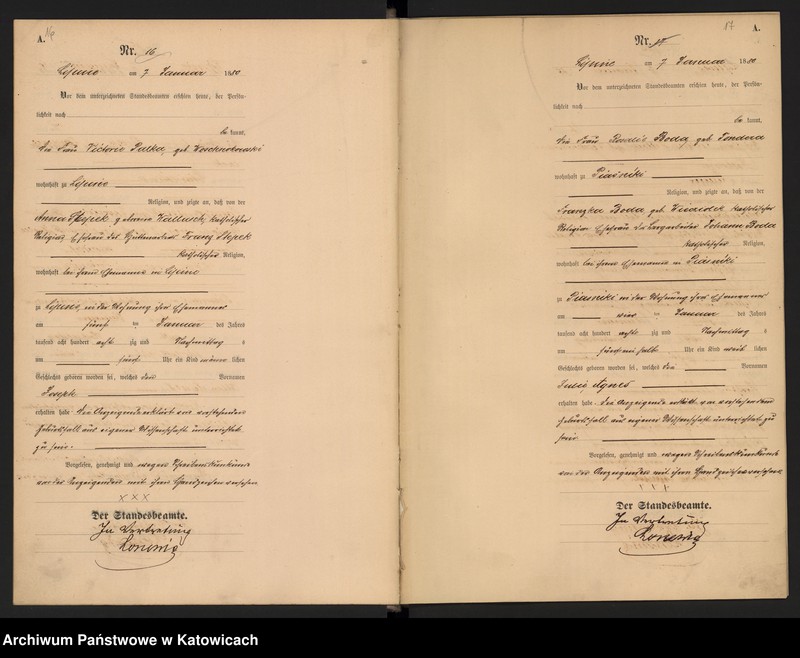 A.
16
Nr. 16
Lipine am 7 Januar 1880
Vor dem unterzeichneten Standesbeamten erschien heute, der Persön-
lichkeit nach
be kannt,
die Frau Victorie Palka, geb.
wohnhaft zu Lipine
Religion, und zeigte an, daß von der
Anna geborene katholischer
Religion Ehefrau des Franz
katholischer Religion,
wohnhaft bei ihrem Ehemanne in Lipine
zu Lipine, in der Wohnung ihres Ehemannes
am fünf ten Januar des Jahres
tausend acht hundert acht zig und Nachmittag s
um fünf Uhr ein Kind männ lichen
Geschlechts geboren worden sei, welches den Vornamen
Joseph
erhalten habe. Die Anzeigende erklärt von vorstehendem
Geburtsfall aus eigener Wissenschaft unterrichtet
zu sein.
Vorgelesen, genehmigt und wegen Schreibensunkunde
von der Anzeigenden mit ihrem Handzeichen versehen
XXX
Der Standesbeamte.
In Vertretung
17
A.
Nr. 17
Lipine am 7 Januar 1880
Vor dem unterzeichneten Standesbeamten erschien heute, der Persön-
lichkeit nach
be kannt,
die Frau Rosalie Boda geb.
wohnhaft zu Piasniki
Religion, und zeigte an, daß von der
Franzka Boda, geb. katholischer
Religion Ehefrau des Johann Boda
katholischer Religion,
wohnhaft bei ihrem Ehemanne in Piasniki
zu Piasniki in der Wohnung ihres Ehemannes
am vier ten Januar des Jahres
tausend acht hundert acht zig und Nachmittag s
um Uhr ein Kind weib lichen
Geschlechts geboren worden sei, welches die Vornamen
Julie Agnes
erhalten habe. Die Anzeigende erklärt von vorstehendem
Geburtsfall aus eigener Wissenschaft unterrichtet zu
sein
Vorgelesen, genehmigt und wegen Schreibensunkunde
von der Anzeigenden mit ihrem Handzeichen versehen
Der Standesbeamte.
In Vertretung
Archiwum Państwowe w Katowicach